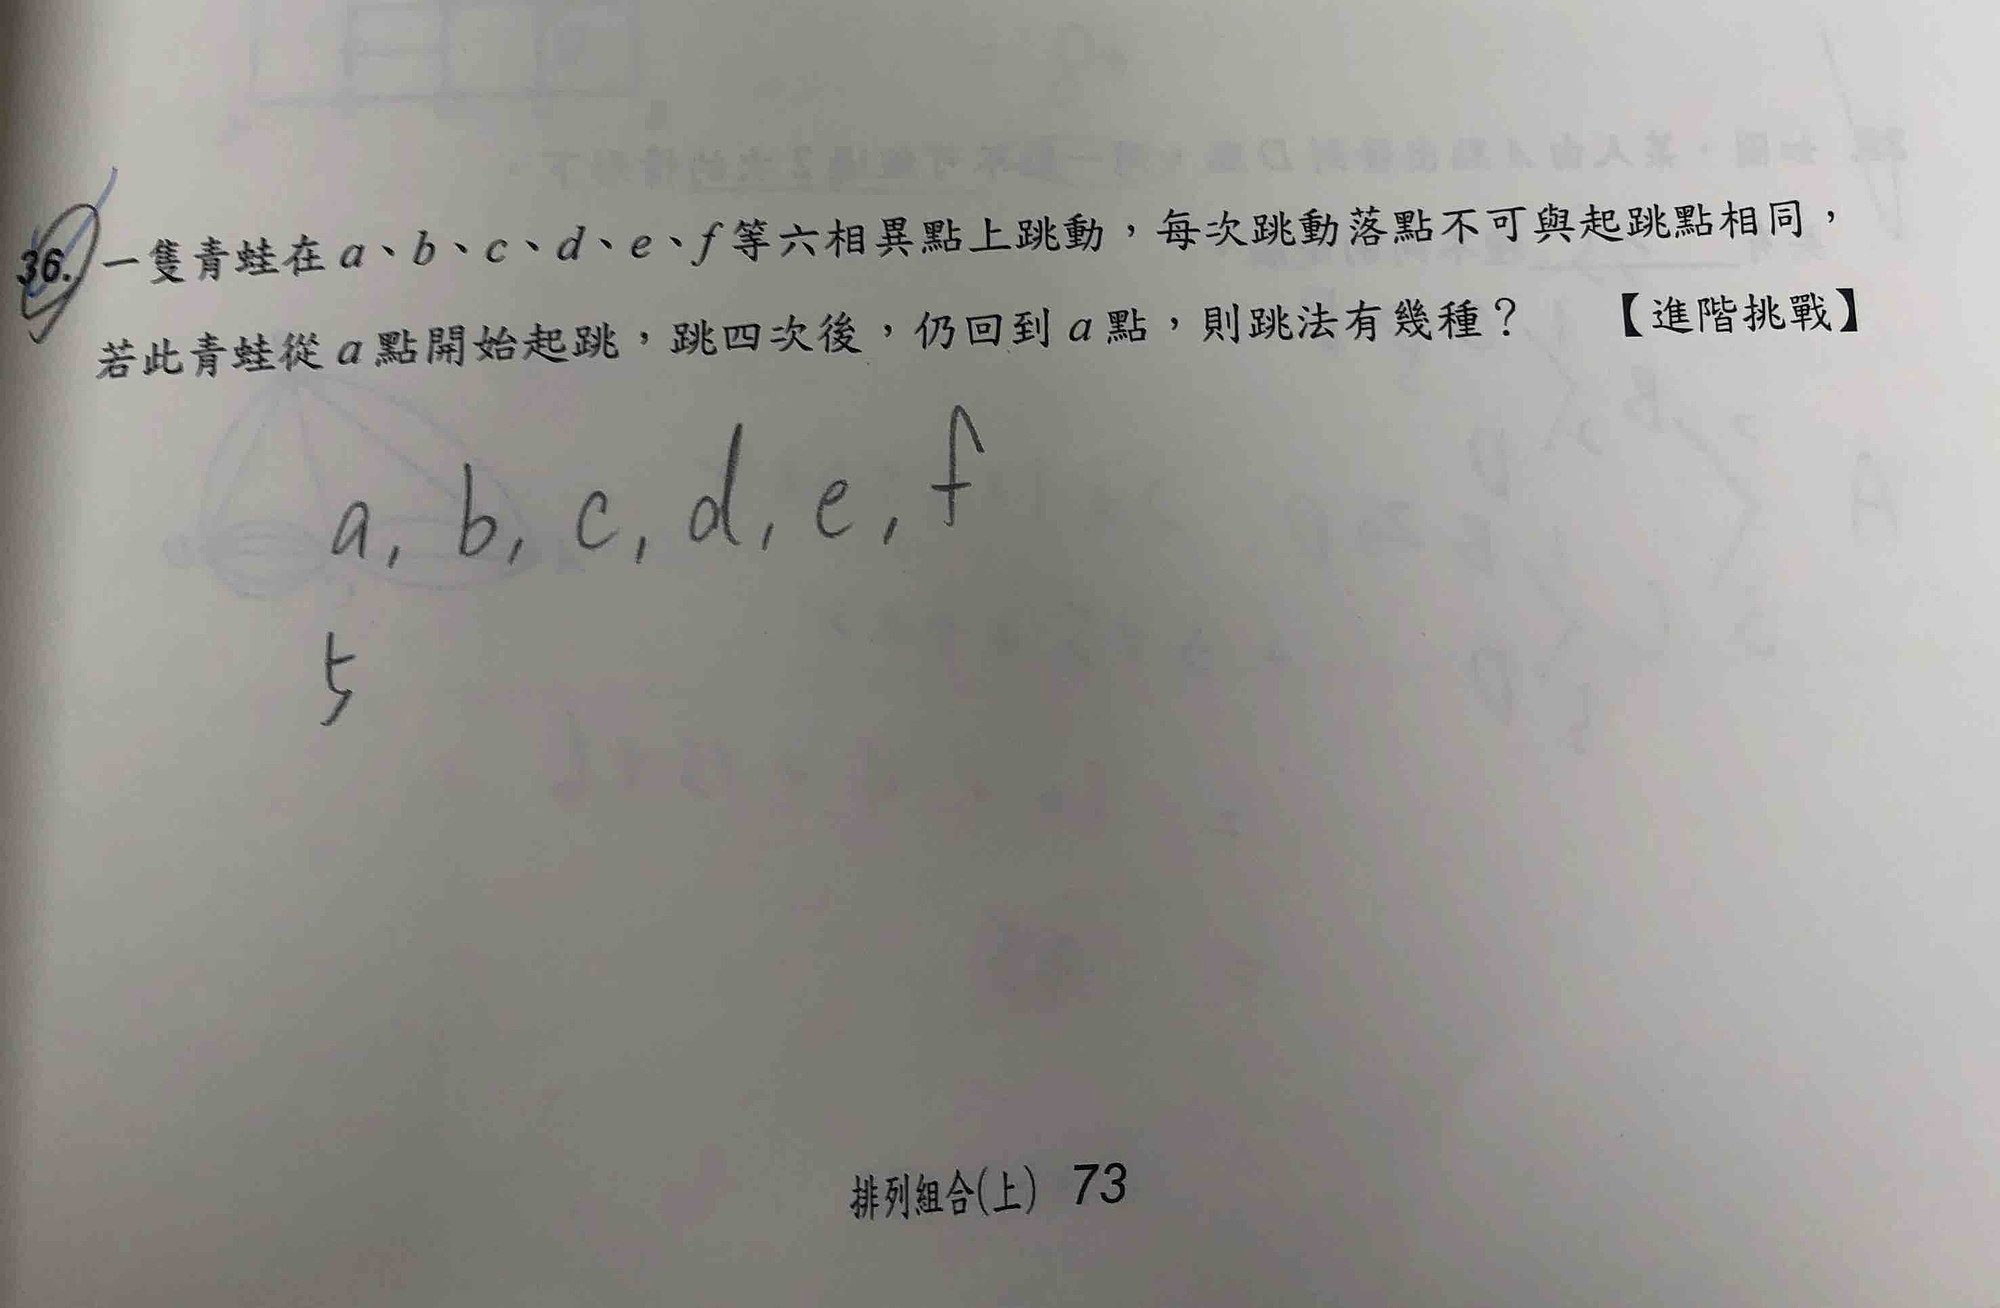 36. 一隻青蛙在 a、b、c、d、e、f 等六相異點上跳動，每次跳動落點不可與起跳點相同，
若此青蛙從 a 點開始起跳，跳四次後，仍回到 a 點，則跳法有幾種？ 【進階挑戰】
a, b, c, d, e, f
5
排列組合(上) 73